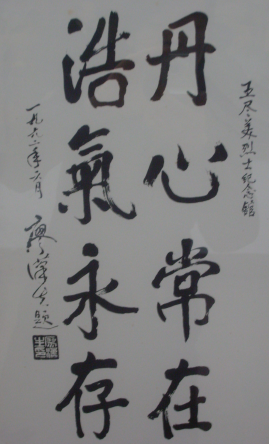 王尽美烈士纪念馆
丹心常在
浩氣永存
一九九二年六月
廖漢生題